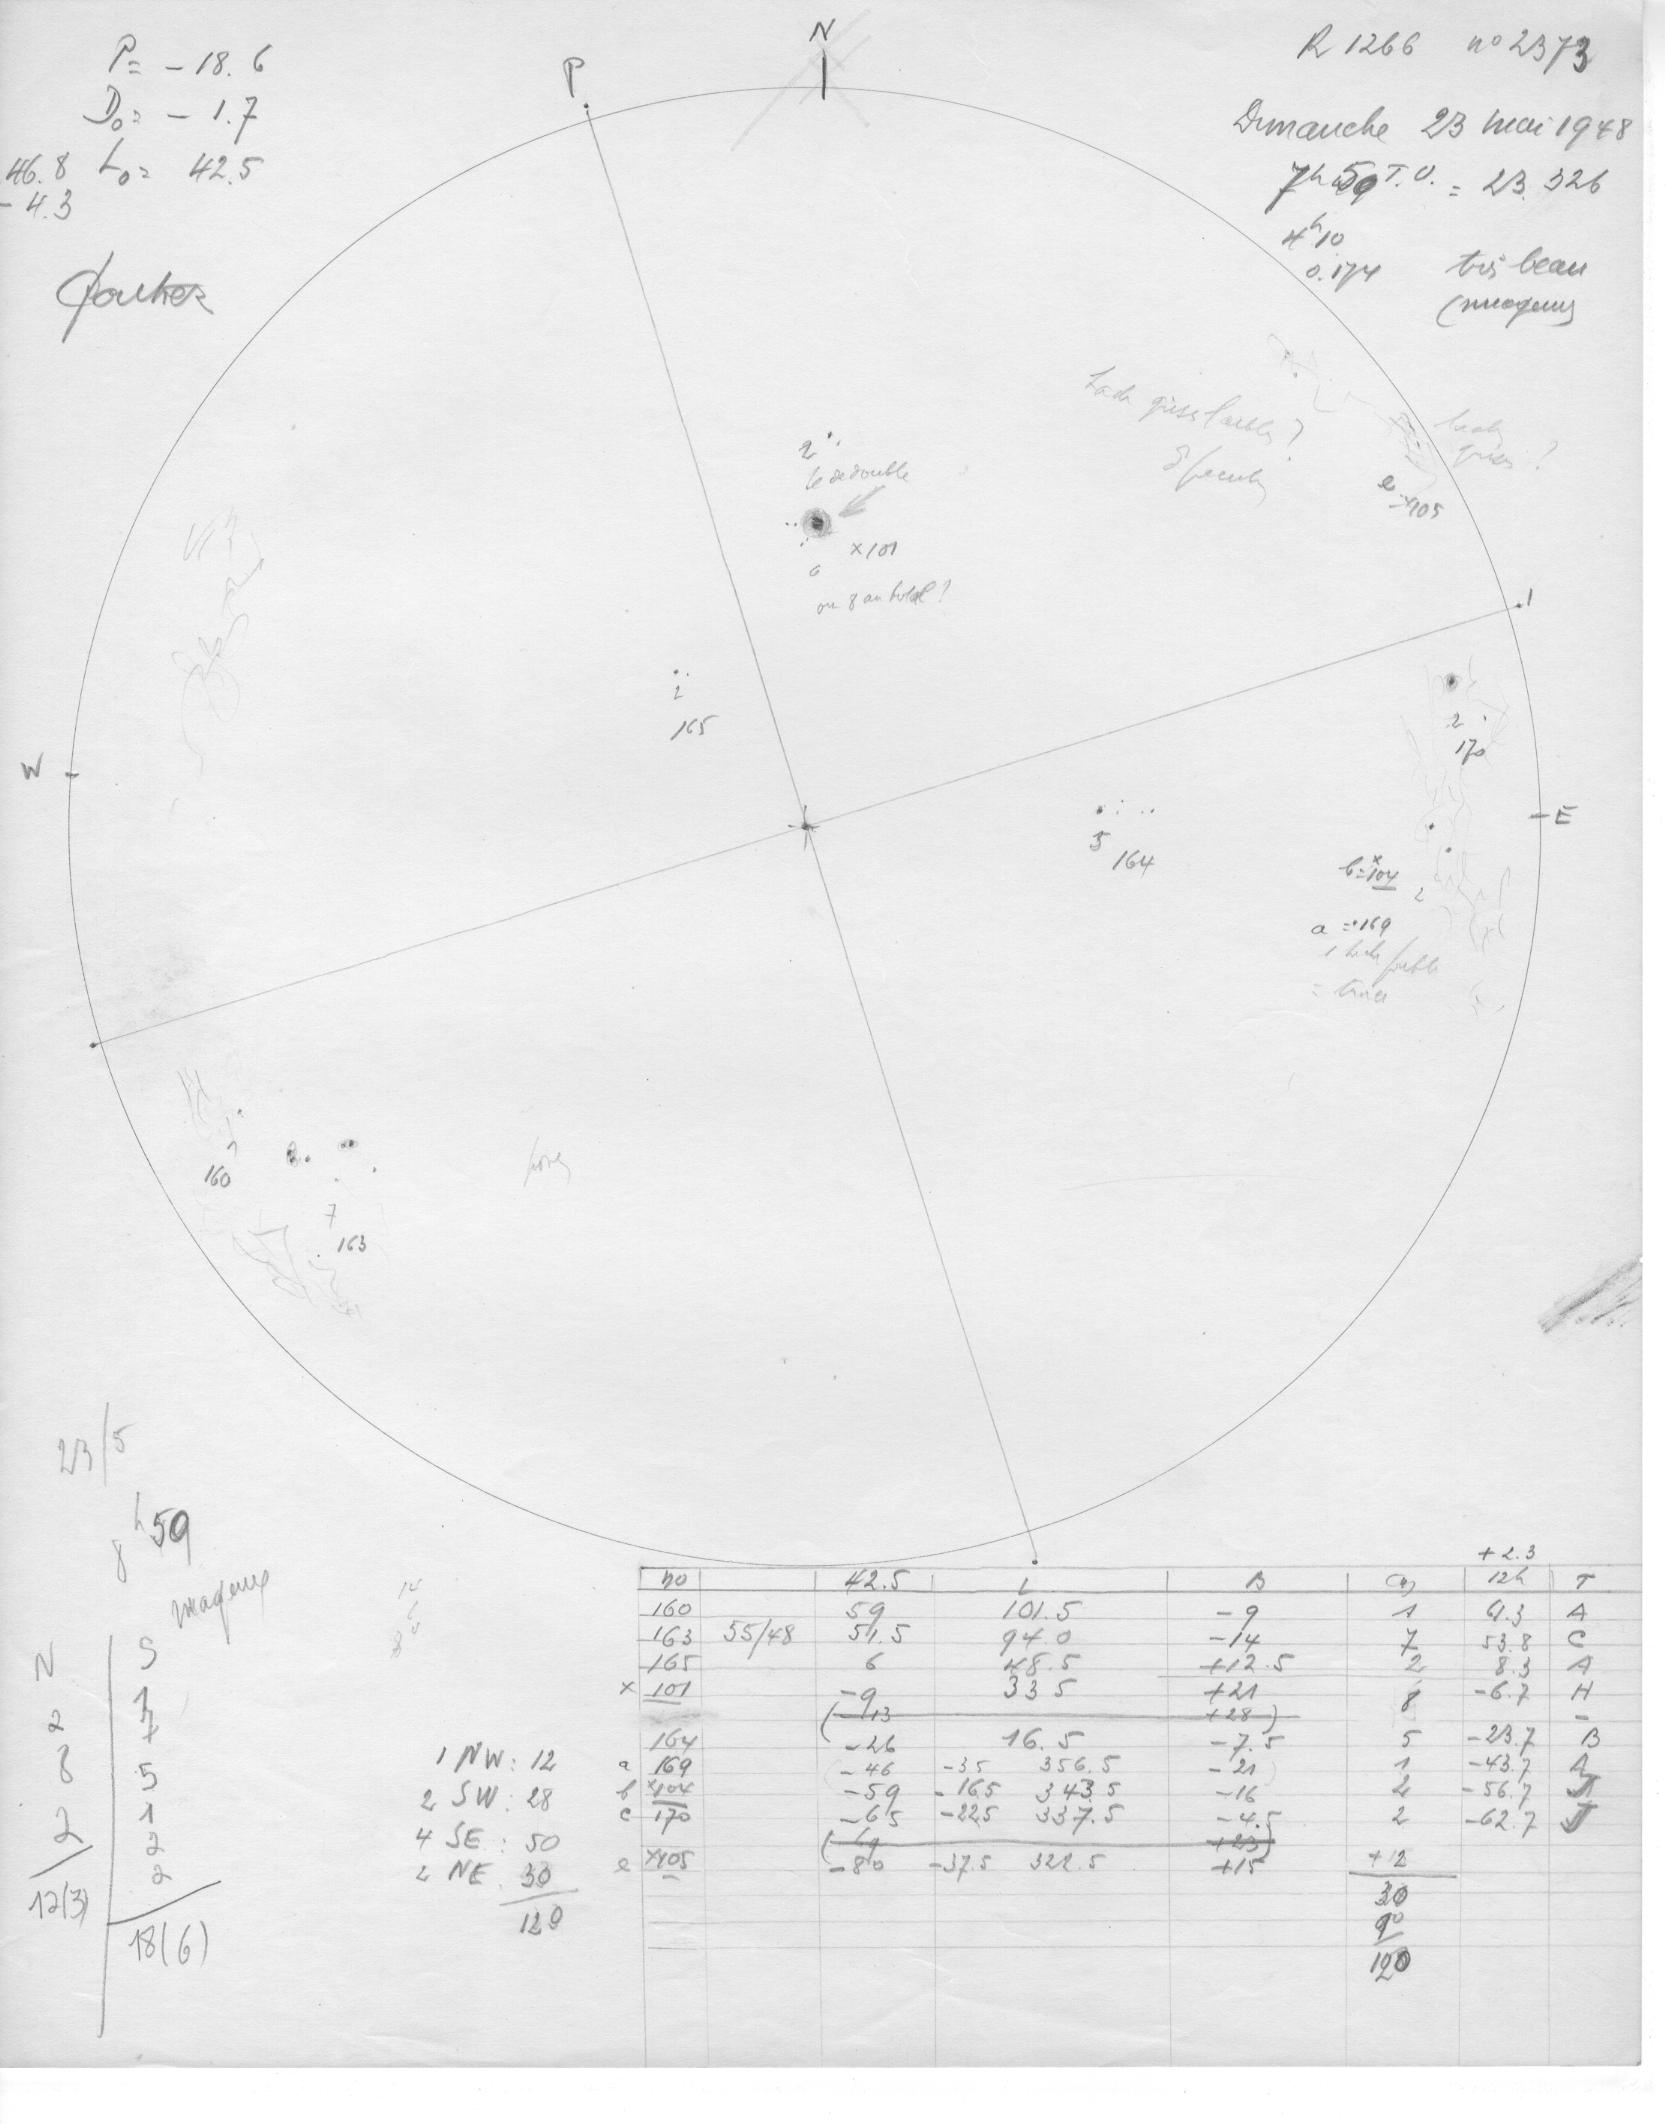 P= -18.6
D₀= -1.7
46.8 L₀= 42.5
-4.3
N
P
R 1266 n° 2373
Dimanche 23 mai 1948
7h59 T.U. = 23.326
4h10
0.174 très beau
(nuageux)
2
le dédouble
x101
6
ou 8 au total?
tache grise faible?
tache grise?
e x105
2
165
W
I
2
170
E
5
164
b=x104
2
a = 169
1 tache faible
= trace
160
7
163
pores
23/5
8h59
nuageux
N S
2 1
8 7
2 5
1
2
2
12(3)
18(6)
1 NW: 12
2 SW: 28
4 SE: 50
2 NE 30
120
+2.3
no 42.5 L B 12h T
160 59 101.5 -9 1 61.3 A
163 55/48 51.5 94.0 -14 7 53.8 C
165 6 48.5 +12.5 2 8.3 A
x 101 -9 33.5 +21 8 -6.7 H
(-13 +28) -
164 -26 16.5 -7.5 5 -23.7 B
a 169 -46 -3.5 356.5 -21 1 -43.7 A
b x104 -59 -16.5 343.5 -16 2 -56.7
c 170 -65 -22.5 337.5 -4.5 2 -62.7 J
(69 +23)
e x105 -80 -37.5 322.5 +15 +12
30
90
120